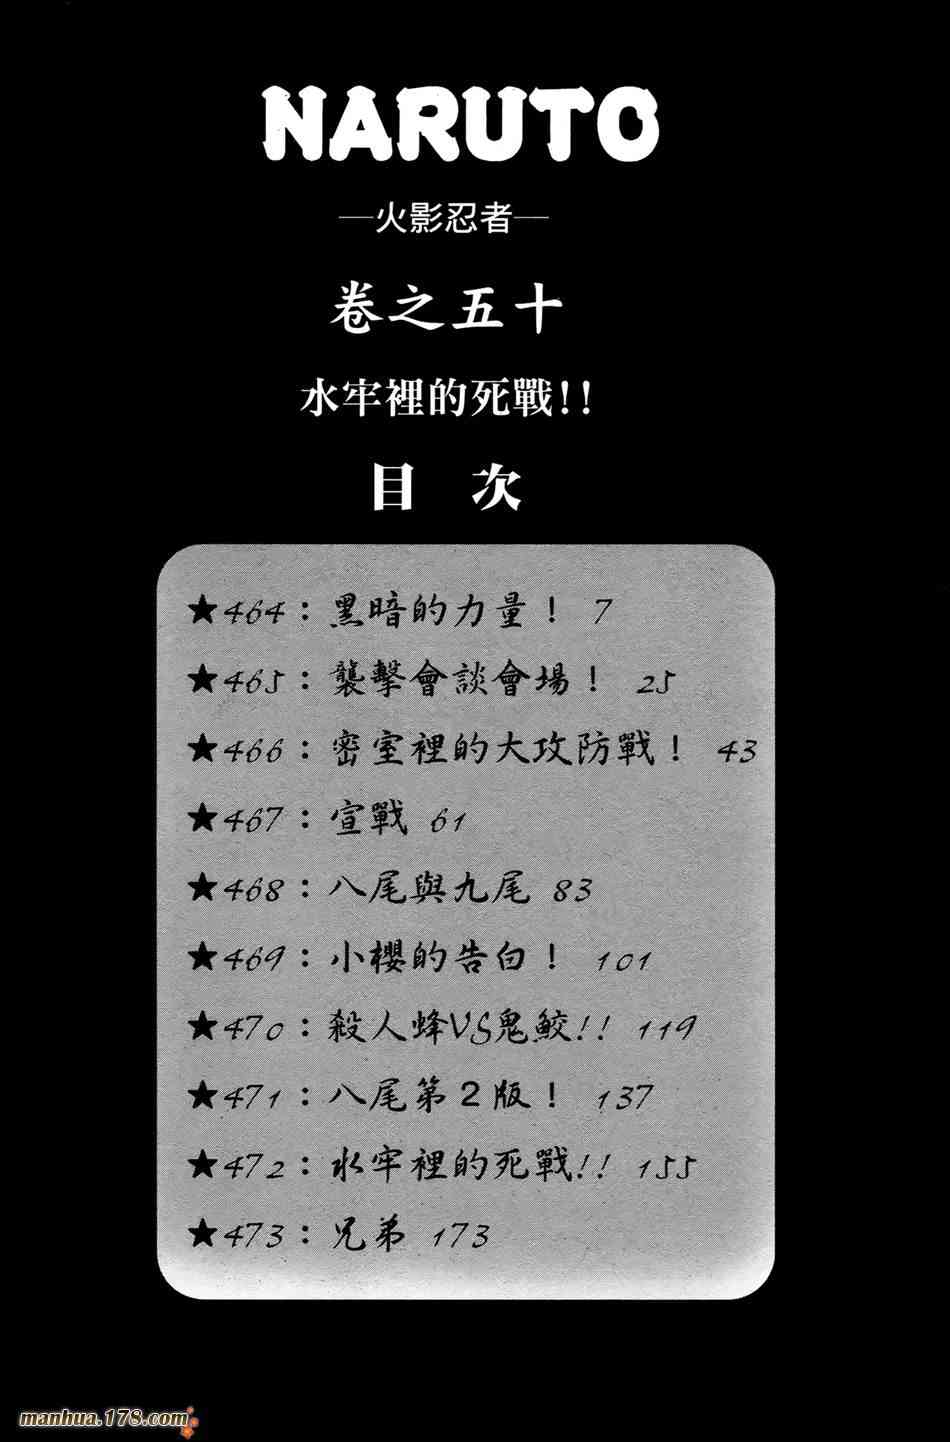 NARUTO
—火影忍者—
卷之五十
水牢裡的死戰!!
目 次
★464：黑暗的力量！ 7
★465：襲擊會談會場！ 25
★466：密室裡的大攻防戰！ 43
★467：宣戰 61
★468：八尾與九尾 83
★469：小櫻的告白！ 101
★470：殺人蜂VS鬼鮫!! 119
★471：八尾第２版！ 137
★472：水牢裡的死戰!! 155
★473：兄弟 173
manhua.178.com